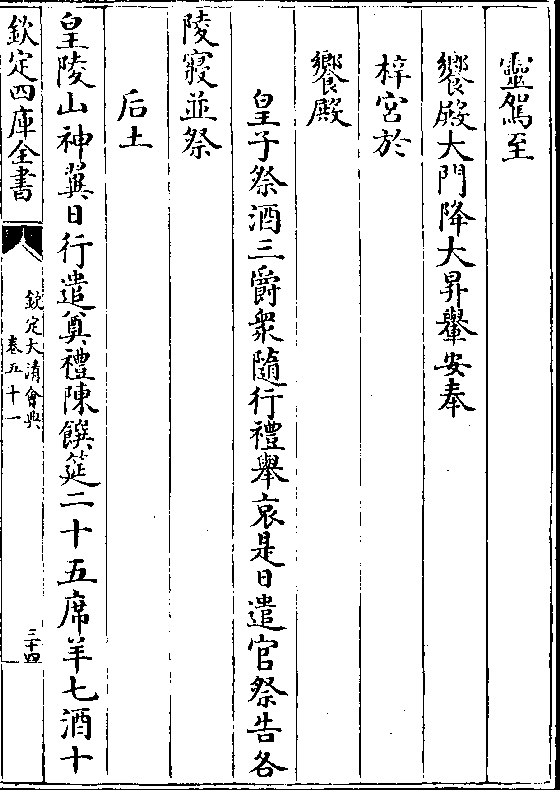 靈駕至
饗殿大門降大昇轝安奉
梓宫於
饗殿
皇子祭酒三爵衆隨行禮舉哀是日遣官祭告各
陵寢並祭
后土
皇陵山神翼日行遣奠禮陳饌筵二十五席羊七酒十
欽定四庫全書
欽定大清會典
卷五十一
三十四